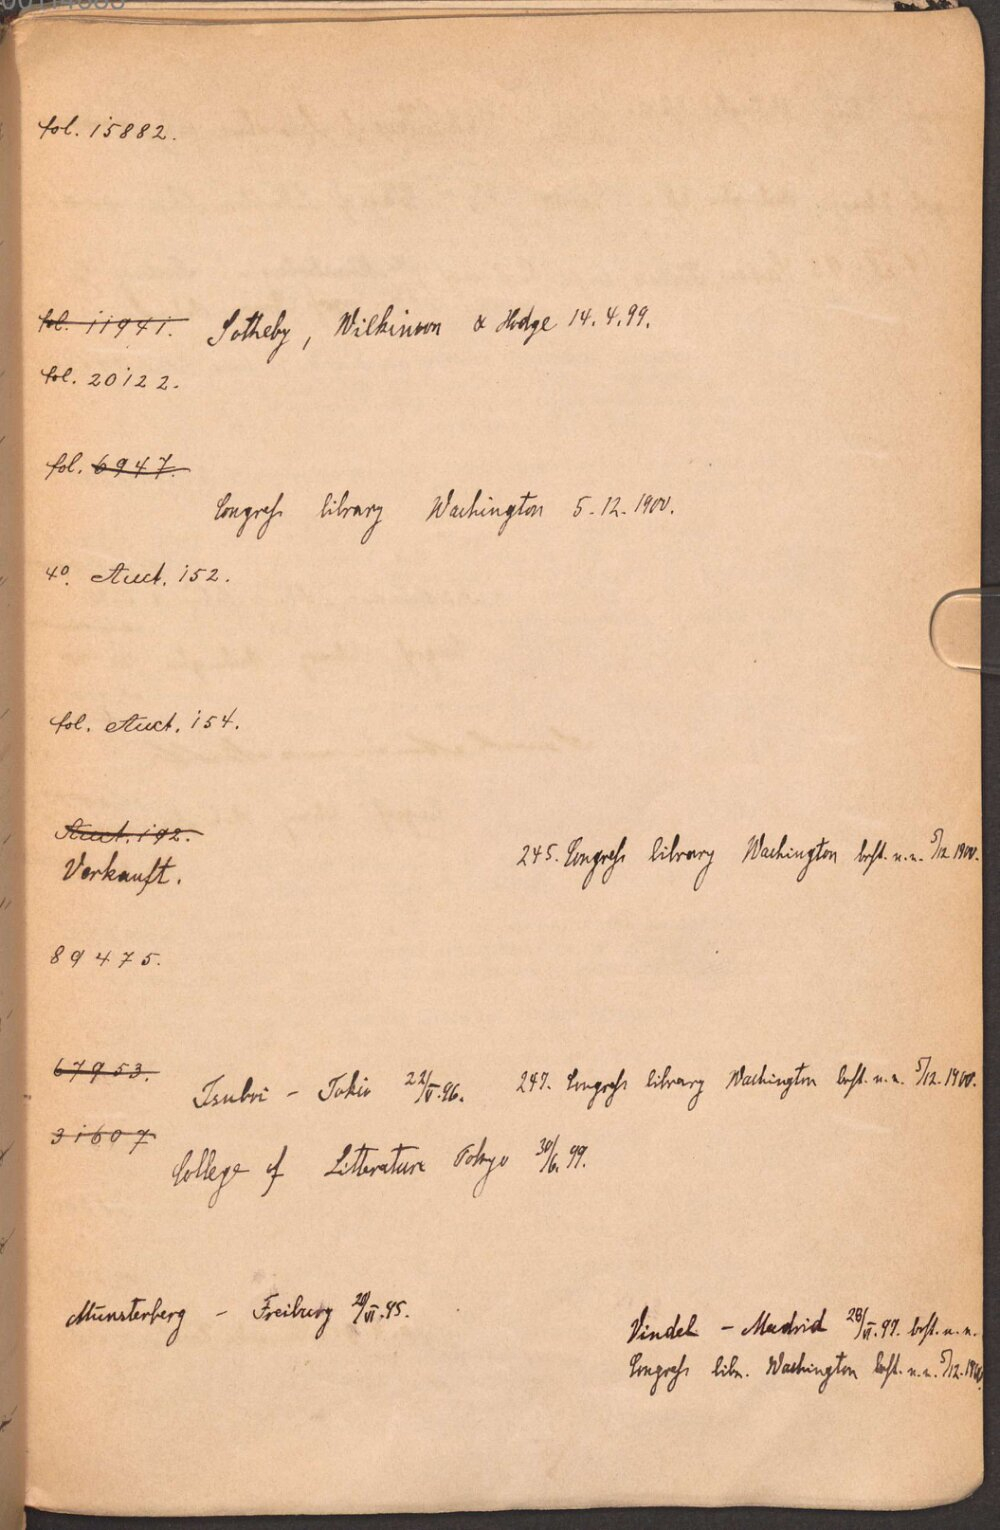 fol. 15882.
fol. 11941. Sotheby, Wilkinson & Hodge 14.4.99.
fol. 20122.
fol. 6947.
Congreſs library Washington 5.-12.-1900.
4º. Auct. 152.
fol. Auct. 154.
Auct. 192.
Verkauft. 245. Congreſs library Washington best. n.n. 5/12 1900.
89475.
67953.
Tsuboi - Tokio 22/V.96. 247. Congreſs library Washington best. n.n. 5/12.1900.
31607
College of Litterature Tokyo 30/6.99.
Münsterberg - Freiburg 20/VI.95.
Vindel - Madrid 28/VI.97. best. n.n.
Congreſs libr. Washington best. n.n. 5/12.1900